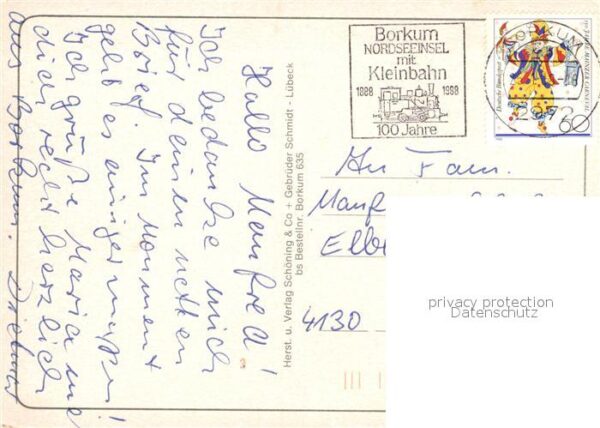 Hallo Manfred!
Ich bedanke mich
für deinen netten
Brief. Im Moment
geht es einigermaßen!
Ich grüße Maria und
dich recht herzlich
aus Borkum. Dietmar
Herst. u. Verlag Schöning & Co + Gebrüder Schmidt - Lübeck
bs Bestellnr. Borkum 635
Borkum
NORDSEEINSEL
mit
Kleinbahn
1888 1988
100 Jahre
BORKUM
2972
Deutsche Bundespost
60
An Fam.
Manf
Elbe
4130
privacy protection
Datenschutz